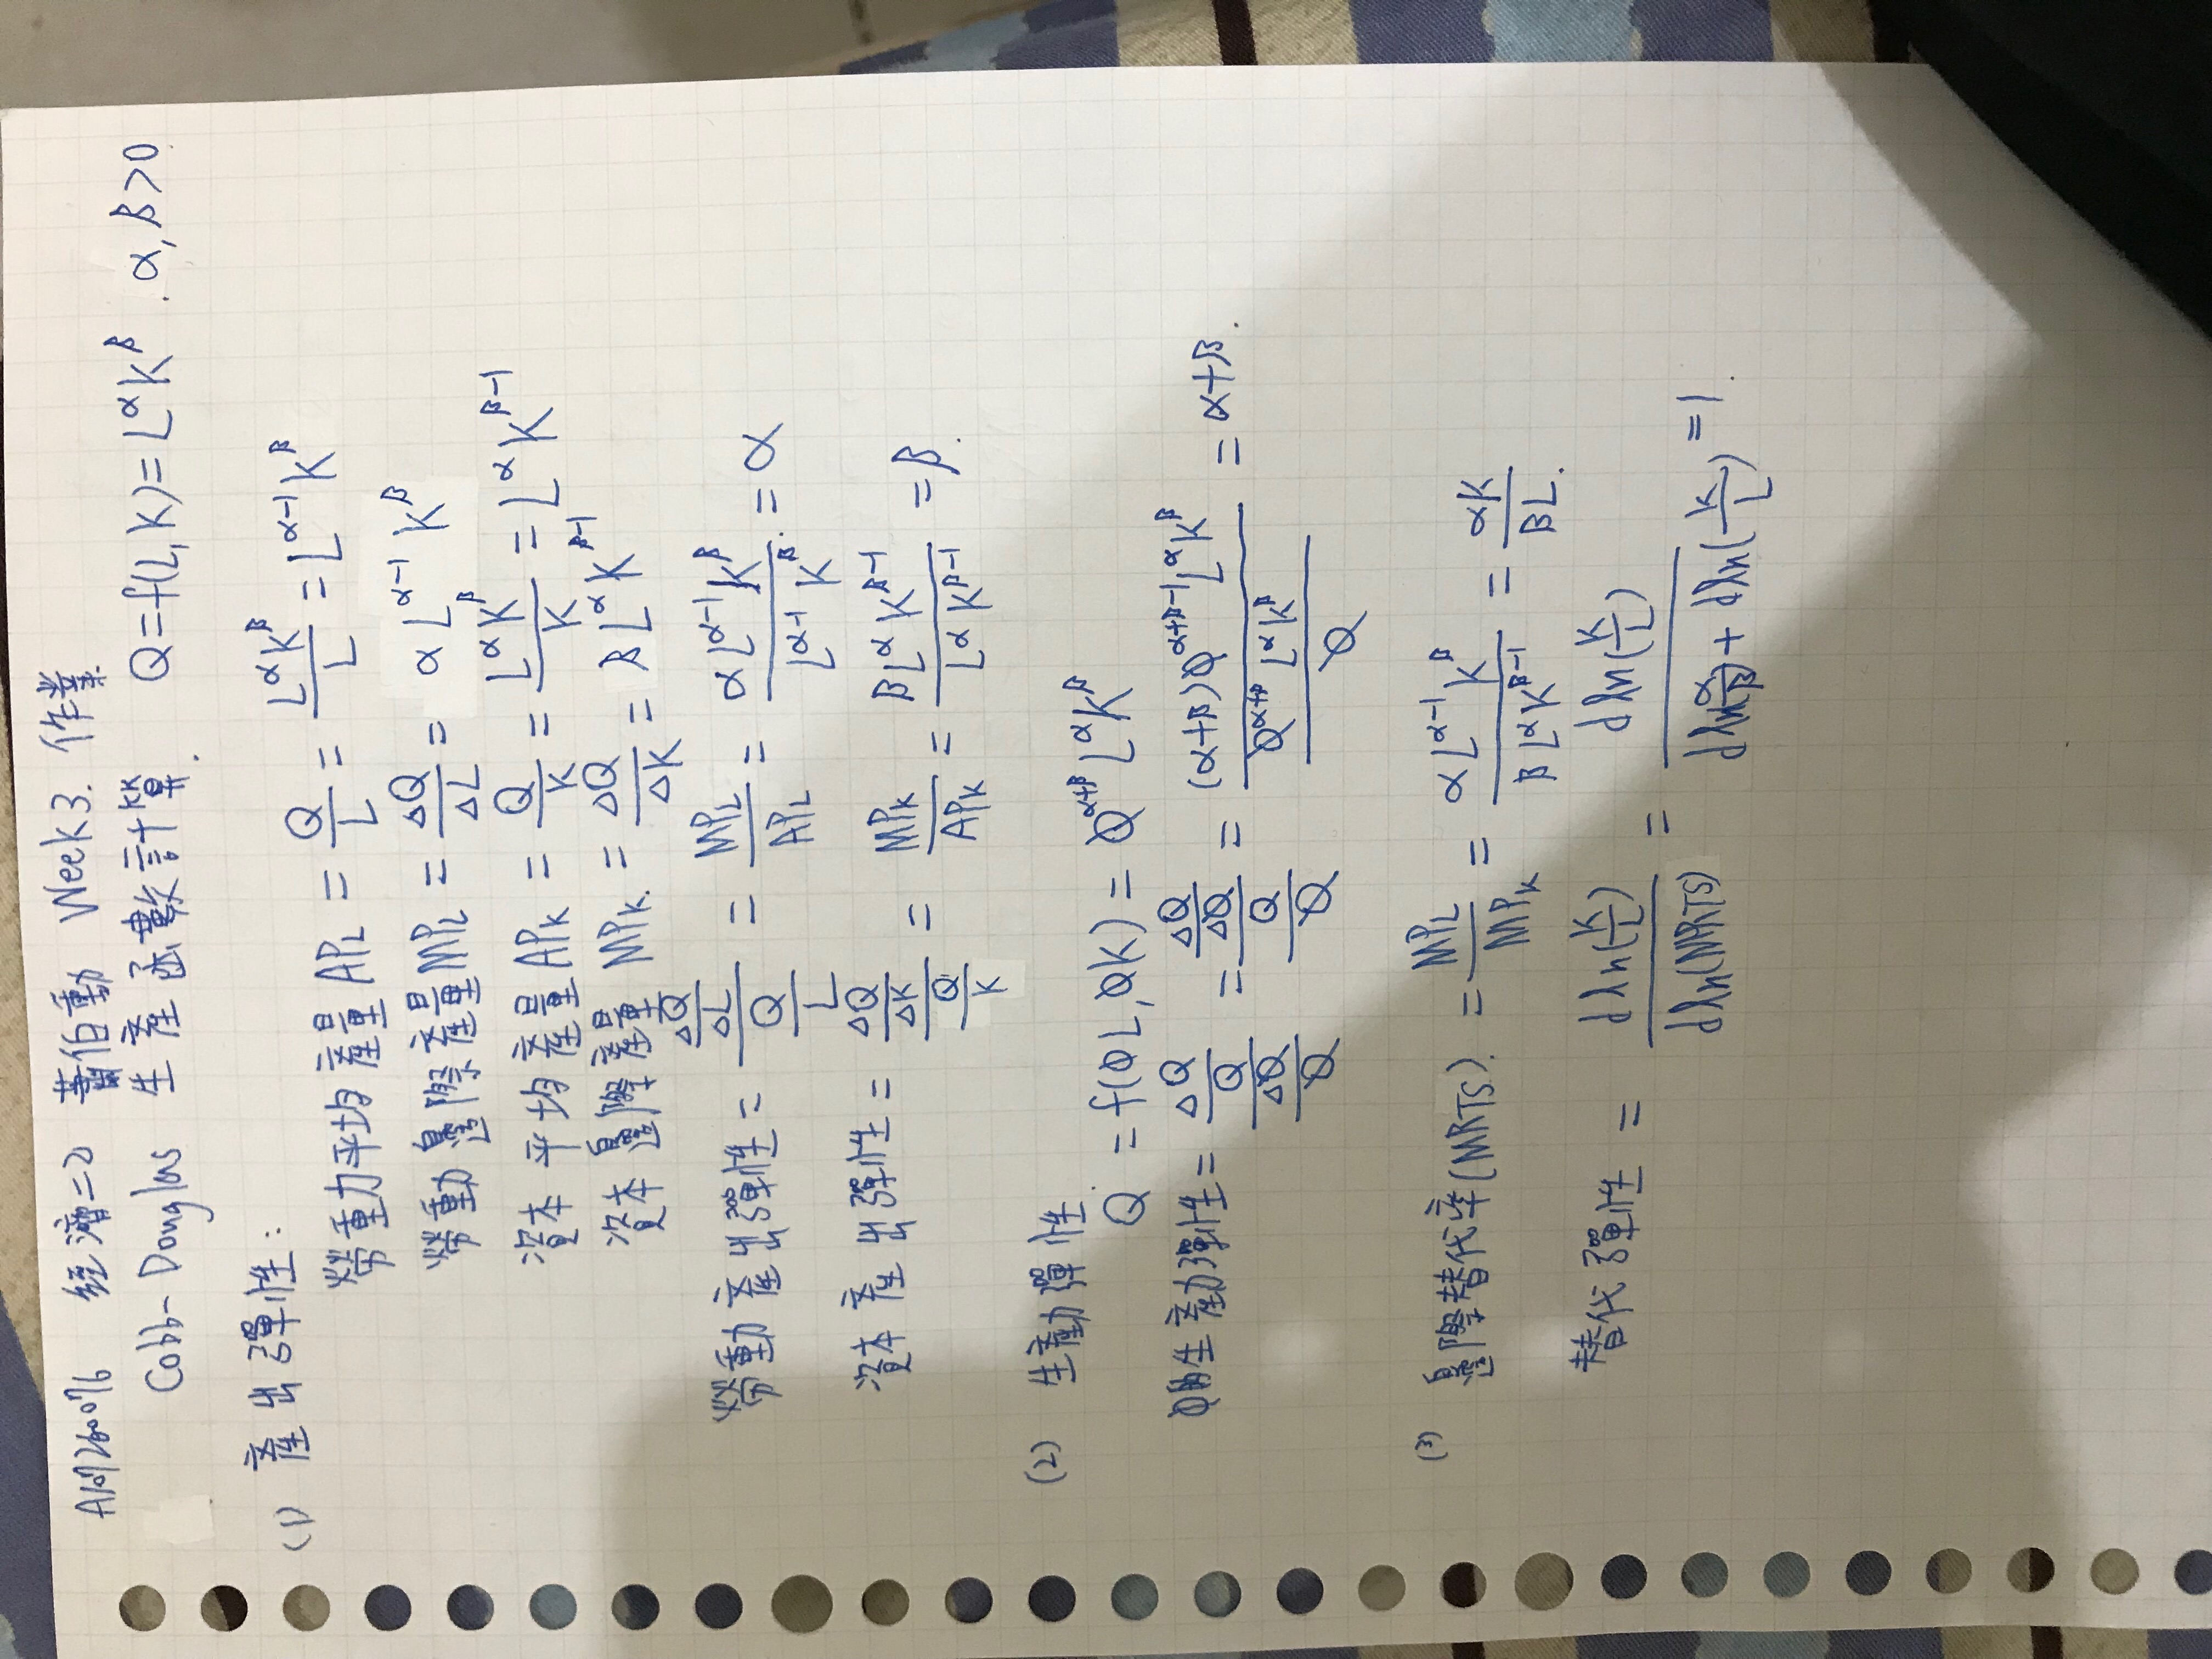 A107260076 經濟=2 蕭伯動 Week3. 作業
Cobb-Douglas 生產函數計算. Q=f(L,K)=L^αK^β . α,β>0
(1) 產出彈性:
勞動力平均產量 AP_L = Q/L = L^αK^β/L = L^(α-1)K^β
勞動邊際產量 MP_L = ΔQ/ΔL = αL^(α-1)K^β
資本平均產量 AP_K = Q/K = L^αK^β/K = L^αK^(β-1)
資本邊際產量 MP_K. = ΔQ/ΔK = βL^αK^(β-1)
勞動產出彈性 = (ΔQ/ΔL)/(Q/L) = MP_L/AP_L = αL^(α-1)K^β/L^(α-1)K^β. = α
資本產出彈性 = (ΔQ/ΔK)/(Q/K) = MP_K/AP_K = βL^αK^(β-1)/L^αK^(β-1) = β.
(2) 生產力彈性.
Q = f(ØL,ØK) = Ø^(α+β)L^αK^β
Ø的生產力彈性 = (ΔQ/Q)/(ΔØ/Ø) = (ΔQ/ΔØ)/(Q/Ø) = (α+β)Ø^(α+β-1)L^αK^β/(Ø^(α+β)L^αK^β/Ø) = α+β.
(3) 邊際替代率(MRTS). = MP_L/MP_K = αL^(α-1)K^β/βL^αK^(β-1) = αK/βL.
替代彈性 = dln(K/L)/dln(MRTS) = dln(K/L)/(dln(α/β)+dln(K/L)) = 1.